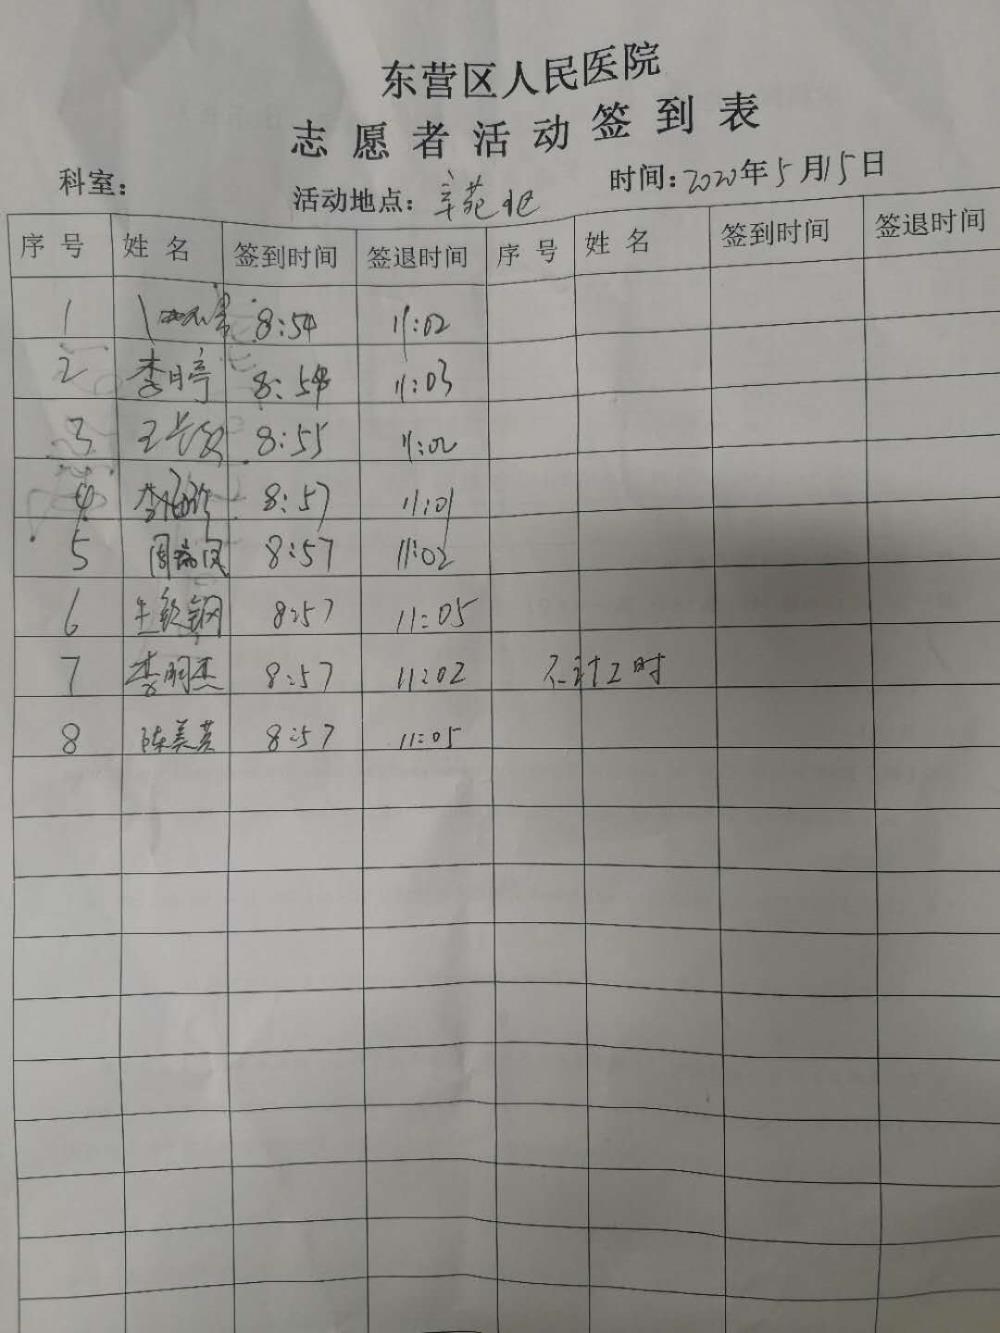 东营区人民医院
志愿者活动签到表
科室： 活动地点：辛苑北 时间：2020年5月15日
序号 姓名 签到时间 签退时间 序号 姓名 签到时间 签退时间
1 8:54 11:02
2 李月婷 8:54 11:03
3 王长 8:55 11:02
4 李 8:57 11:01
5 周瑞凤 8:57 11:02
6 王钦钢 8:57 11:05
7 李明杰 8:57 11:02 不计工时
8 陈美英 8:57 11:05